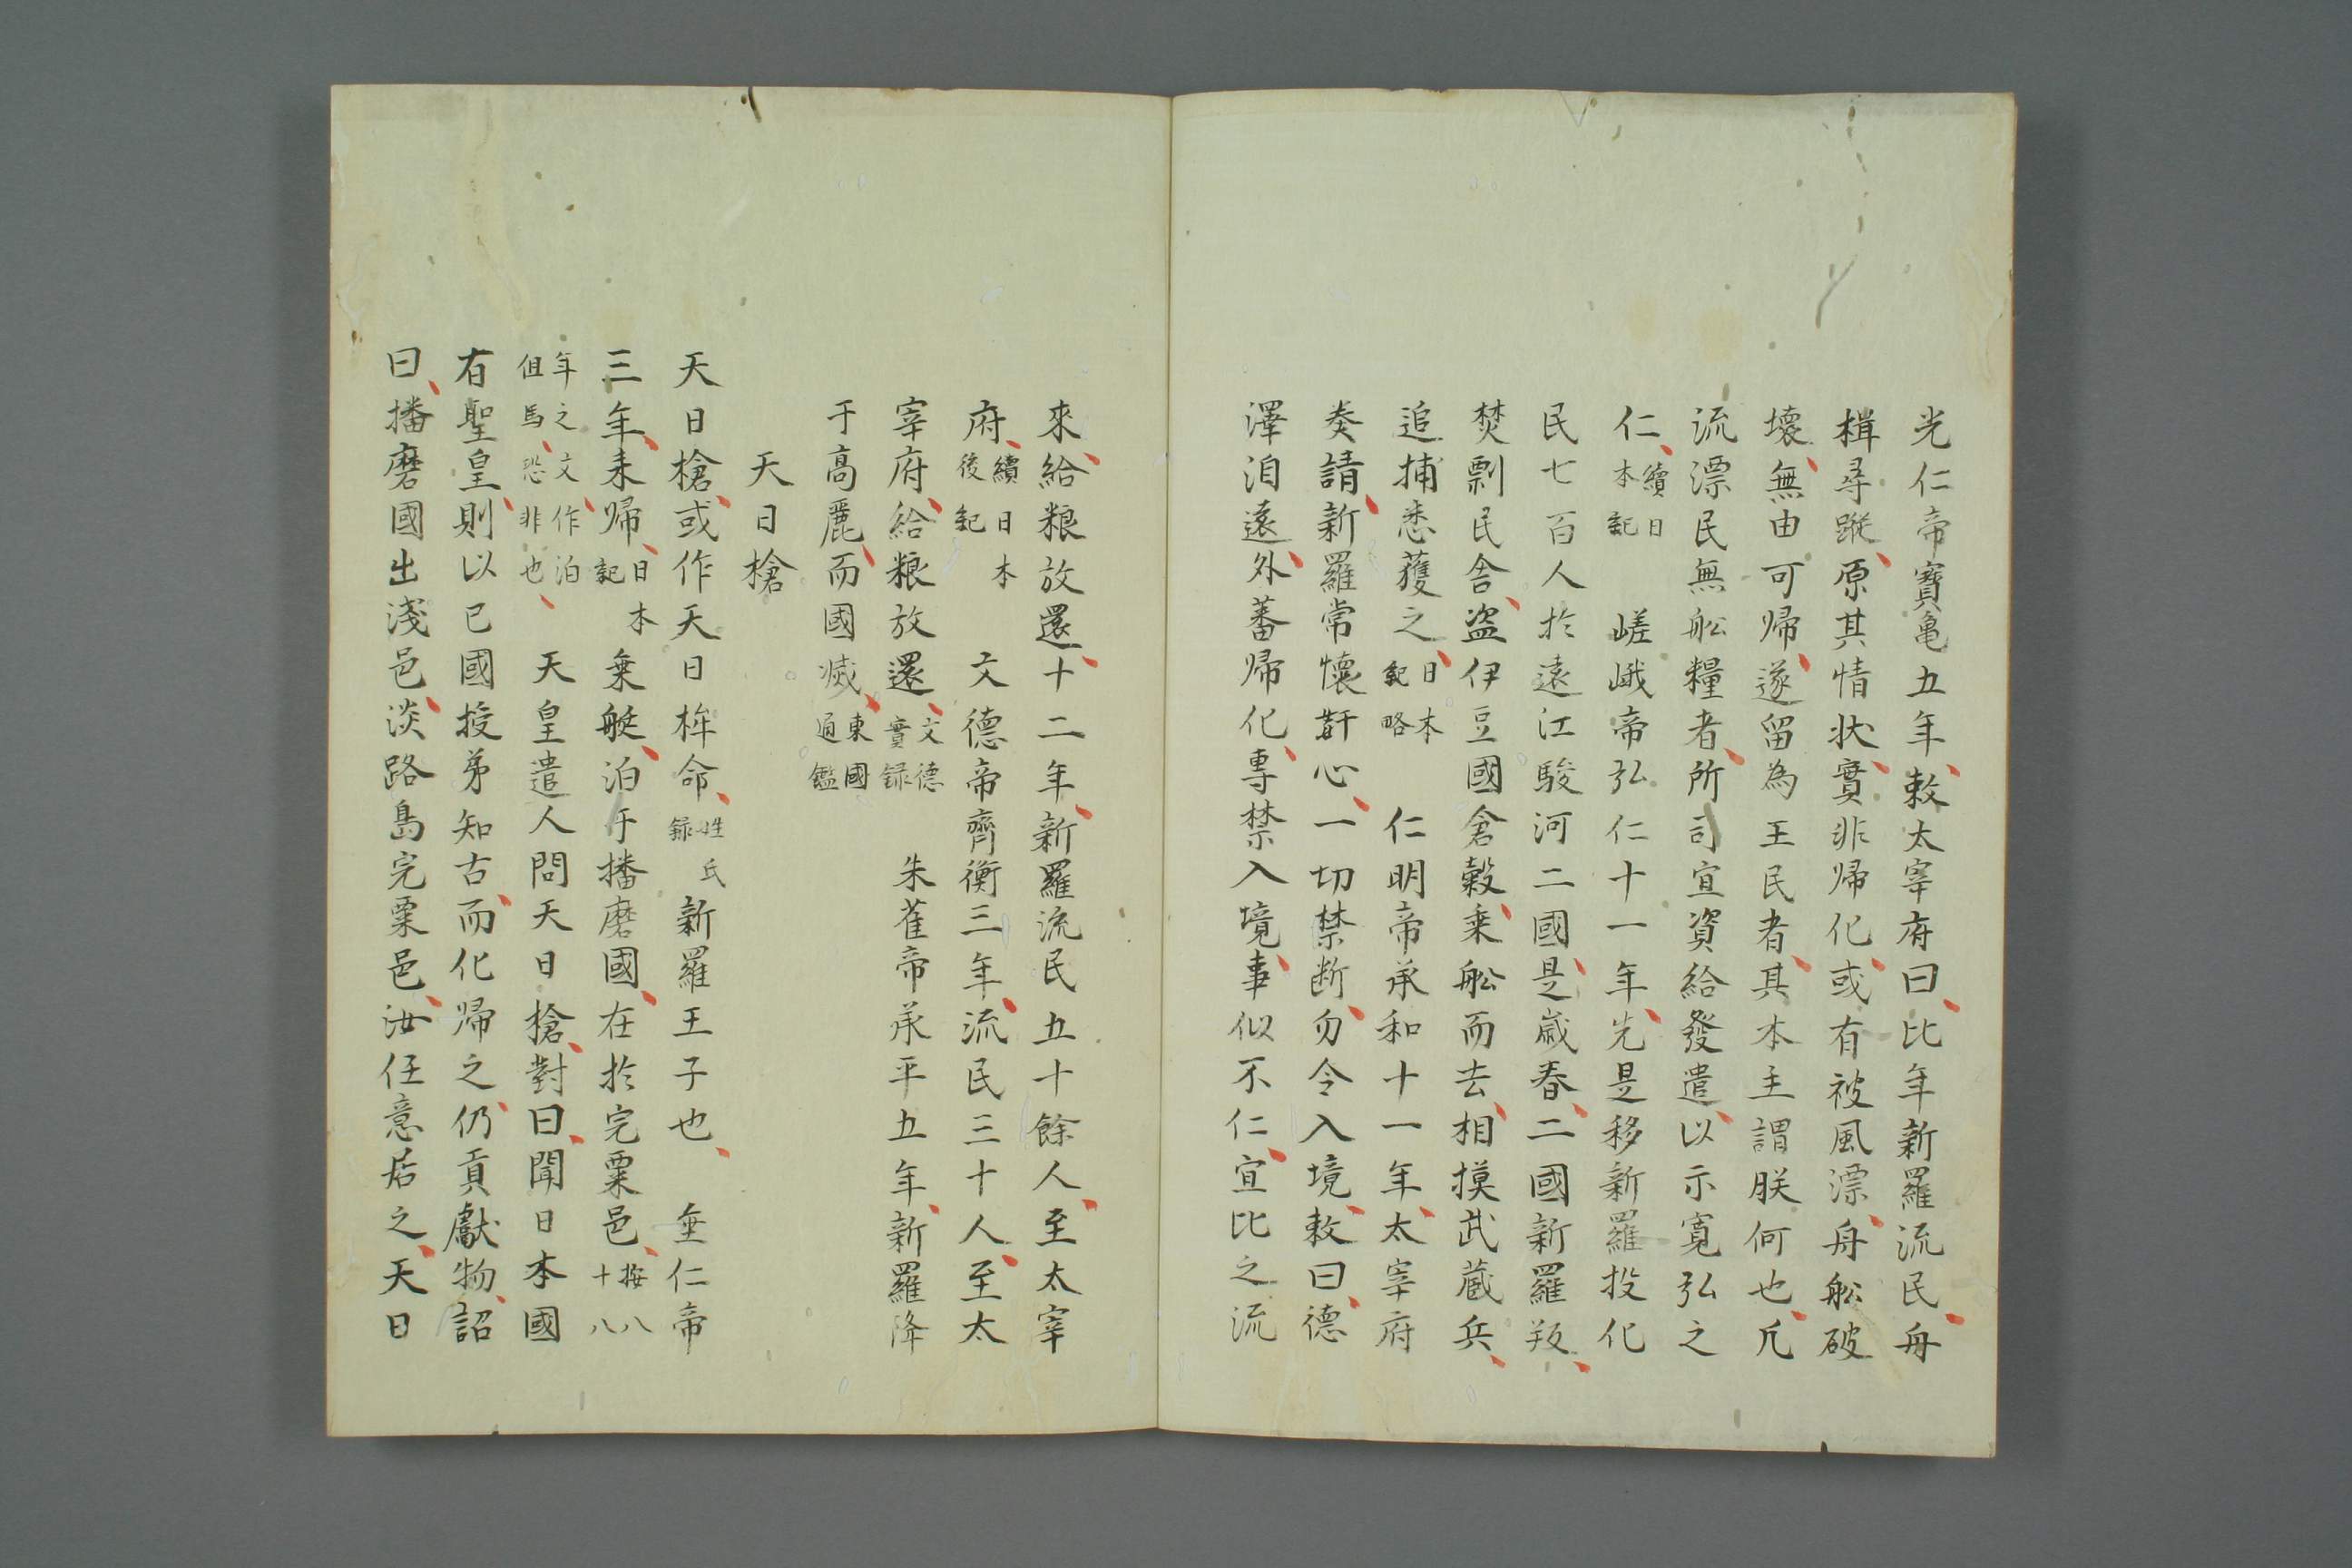 光仁帝寶亀五年、敕太宰府曰、比年新羅流民、舟
楫尋蹤、原其情状、實非帰化、或有被風漂、舟舩破
壊、無由可帰、遂留為王民者、其本主謂朕何也、凡
流漂民無舩糧者、所司宜資給發遣、以示寛弘之
仁、續日本記 嵯峨帝弘仁十一年、先是移新羅投化
民七百人於遠江駿河二國、是歳春、二國新羅叛、
焚剽民舎、盗伊豆國倉穀、乗舩而去、相摸武蔵兵、
追捕悉獲之、日本紀略 仁明帝承和十一年、太宰府
奏請、新羅常懐姧心、一切禁断、勿令入境、敕曰、德
澤洎遠、外蕃帰化、專禁入境、事似不仁、宜比之流
來、給粮放還、十二年、新羅流民五十餘人、至太宰
府、續日本後紀 文德帝齊衡三年、流民三十人、至太
宰府、給粮放還、文德實録 朱雀帝承平五年、新羅降
于高麗、而國滅、東國通鑑
天日槍
天日槍、或作天日桙命、姓氏録 新羅王子也、 垂仁帝
三年、来帰、日本記 乗艇、泊于播磨國、在於宍粟邑、按八十八
年之文、作泊但馬、恐非也、 天皇遣人問天日槍、對曰、聞日本國
有聖皇、則以已國授弟知古、而化帰之、仍貢獻物、詔
曰、播磨國出淺邑、淡路島宍粟邑、汝任意居之、天日